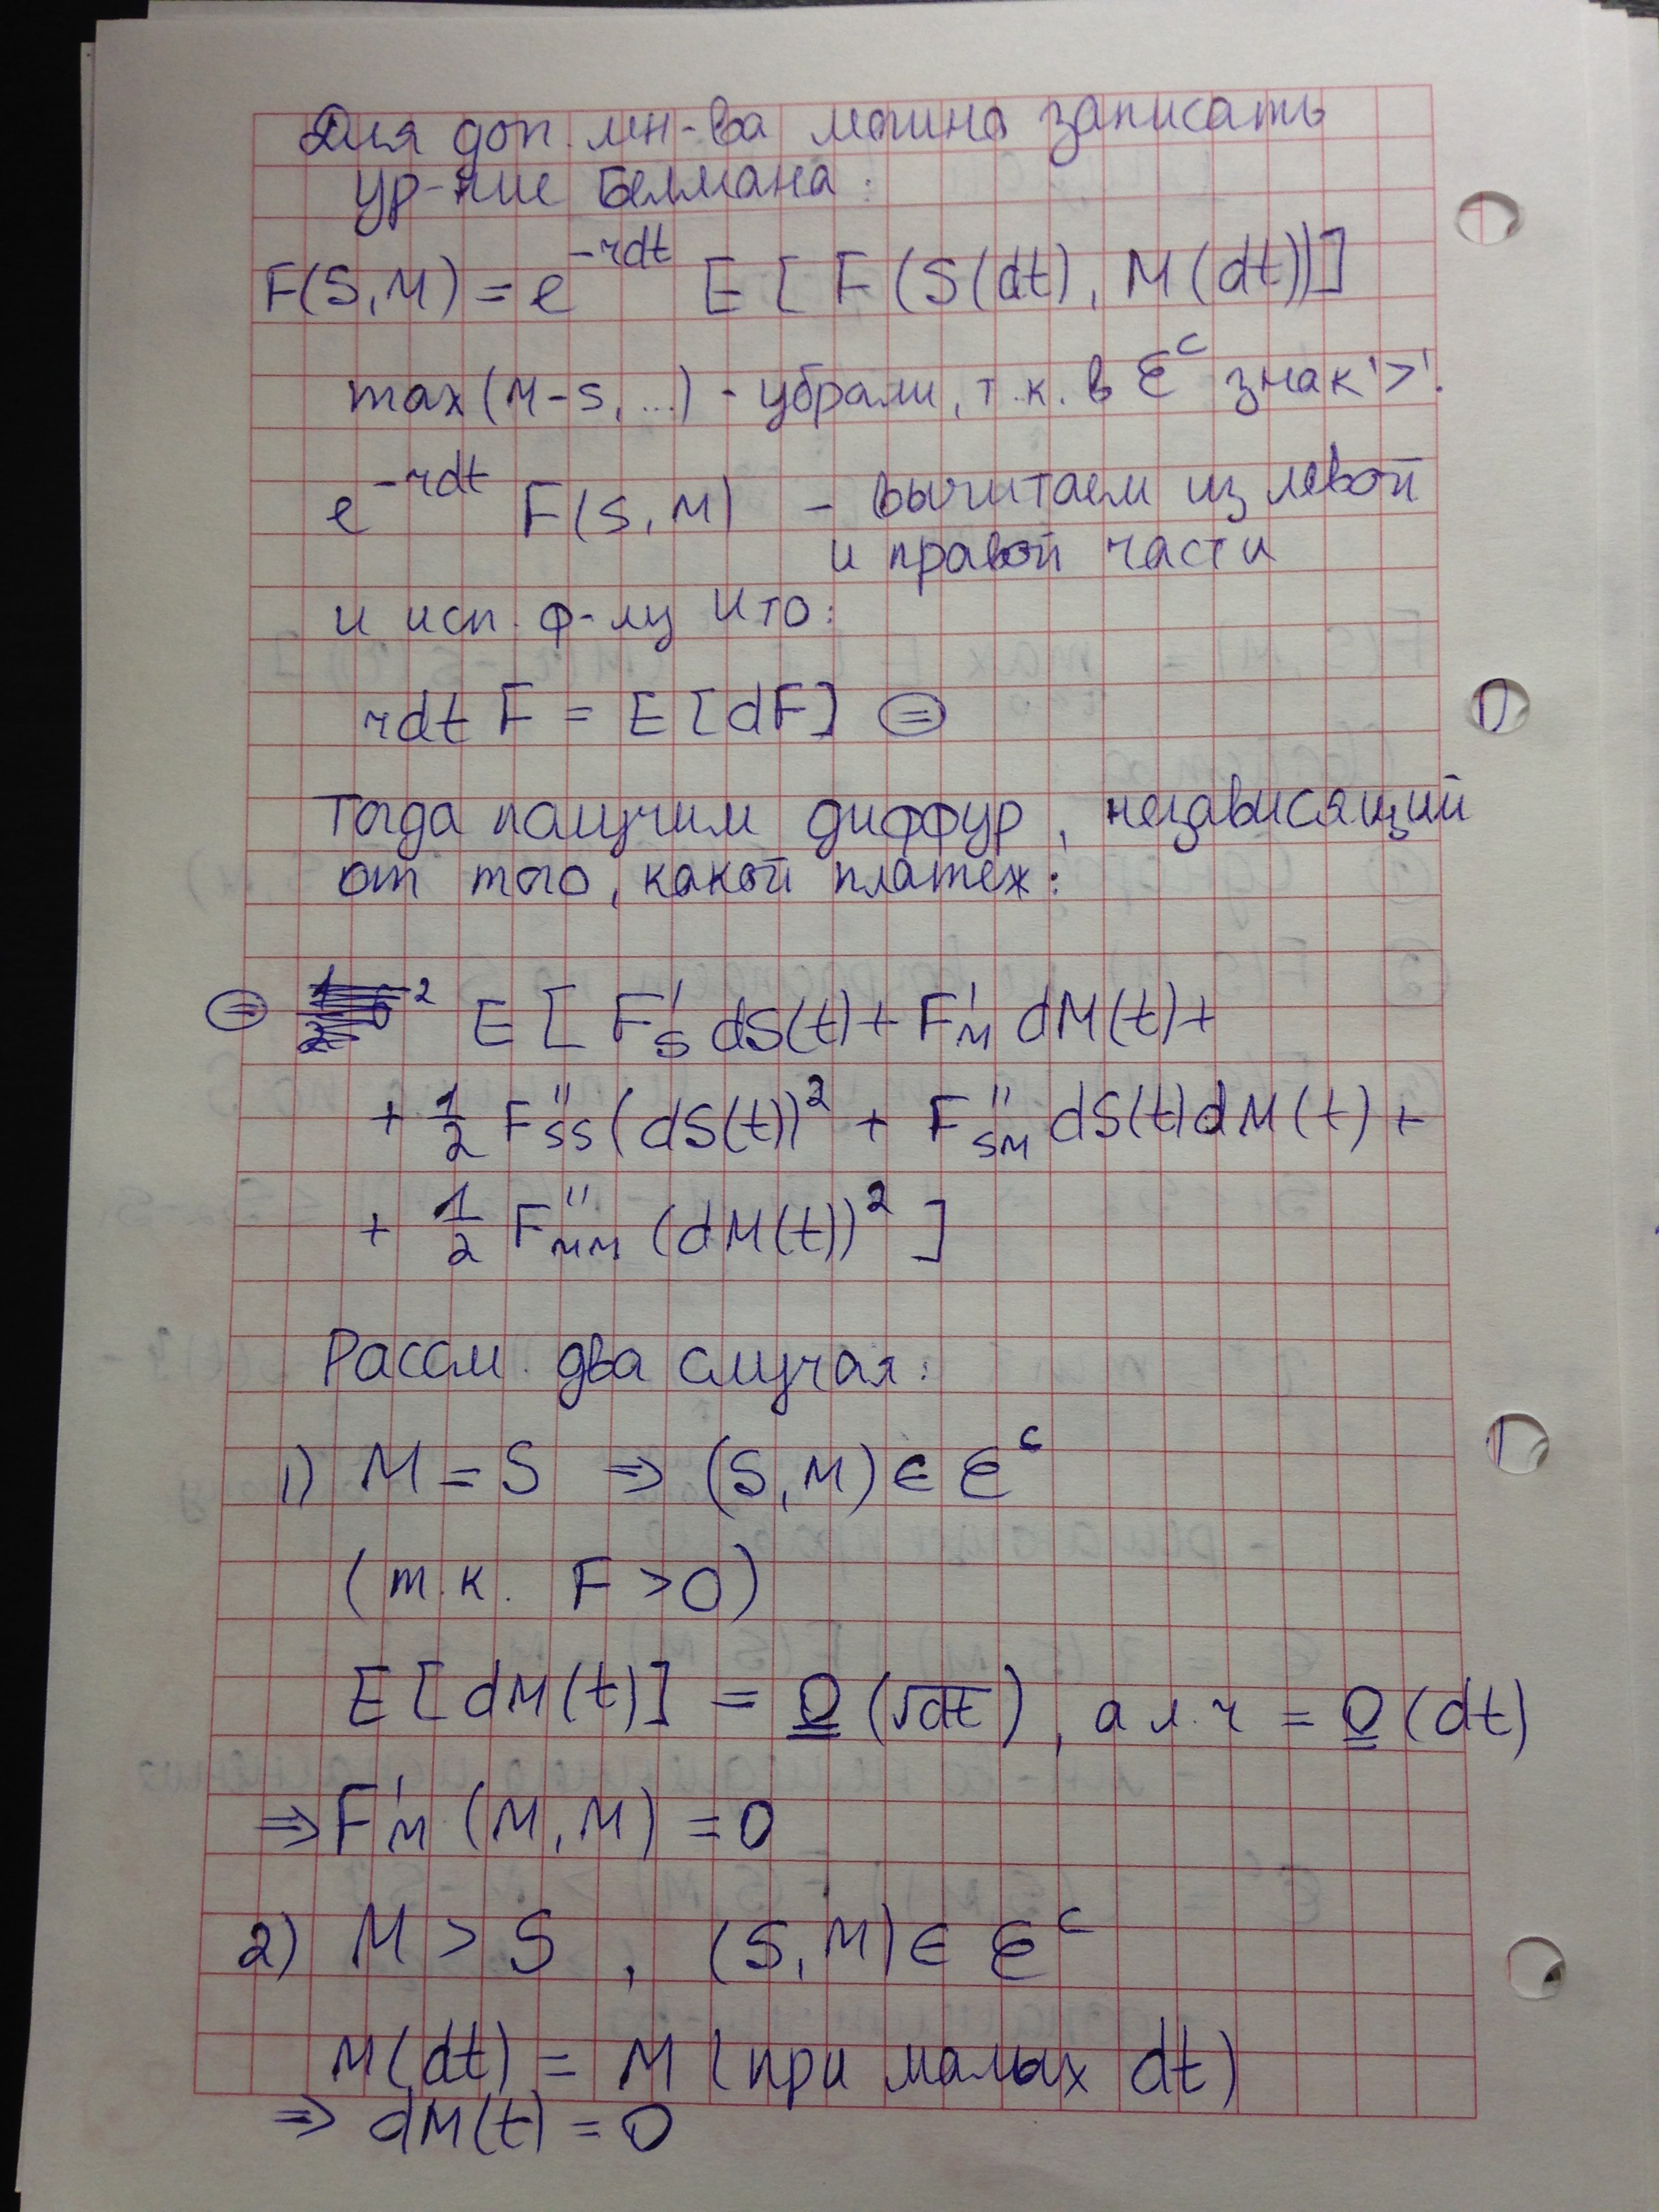 Для доп. мн-ва можно записать
ур-ние Беллмана:
F(S,M) = e^{-rdt} E[F(S(dt), M(dt))]
max(M-S,...) - убрали, т.к. в Ɛ^c знак '>'.
e^{-rdt} F(S,M) - вычитаем из левой
и правой части
и исп. ф-лу Ито:
rdt F = E[dF] ⊜
Тогда получим диффур, независящий
от того, какой платеж:
⊜ E[F'_S dS(t) + F'_M dM(t) +
+ 1/2 F''_{SS} (dS(t))² + F''_{SM} dS(t)dM(t) +
+ 1/2 F''_{MM} (dM(t))²]
Рассм. два случая:
1) M = S ⇒ (S,M) ∈ Ɛ^c
(т.к. F > 0)
E[dM(t)] = O(√dt), а л.ч = O(dt)
⇒ F'_M (M,M) = 0
2) M > S , (S,M) ∈ Ɛ^c
M(dt) = M (при малых dt)
⇒ dM(t) = 0